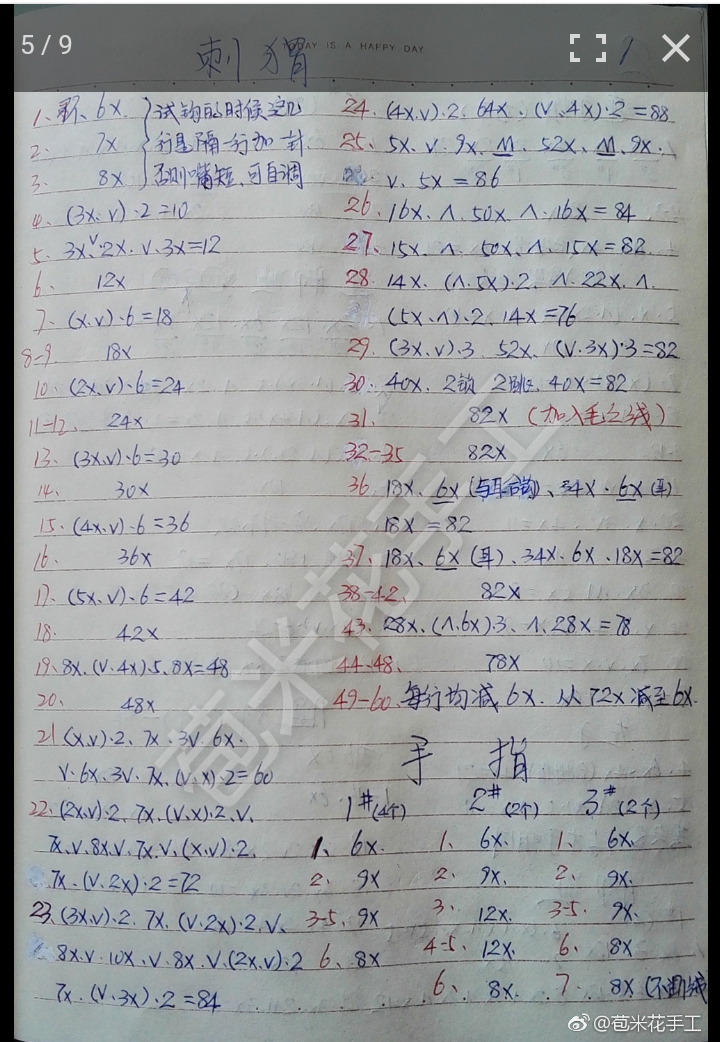 5 / 9
AY IS A HAPPY DAY
刺猬
1
1、环、6x 试钩的时候这几
2、 7x 行是隔一行加一封
3、 8x 否则嘴短,可自调
4、(3x、v)·2=10
5、3x、v·2x、v、3x=12
6、 12x
7、(x、v)·6=18
8-9、 18x
10、(2x、v)·6=24
11-12、 24x
13、(3x、v)·6=30
14、 30x
15、(4x、v)·6=36
16、 36x
17、(5x、v)·6=42
18、 42x
19、8x、(v·4x)·5、8x=48
20、 48x
21 (x、v)·2、7x·3v、6x·
v·6x、3v·7x、(v、x)·2=60
22、(2x、v)·2、7x、(v、x)·2、v、
7x、v、8x、v、7x、v、(x、v)·2、
7x·(v·2x)·2=72
23、(3x、v)·2、7x、(v·2x)·2、v、
8x、v·10x、v·8x、v、(2x、v)·2
7x·(v·3x)·2=84
24、(4x、v)·2、64x、(v、4x)·2=88
25、5x、v·9x、M、52x、M、9x·
v、5x=86
26、16x、∧、50x、∧·16x=84
27、15x、∧、50x、∧、15x=82
28、14x、(∧·5x)·2、∧·22x、∧、
(5x、∧)·2、14x=76
29、(3x、v)·3、52x、(v·3x)·3=82
30、40x、2锁、2跳、40x=82
31、 82x (加入毛毛线)
32-35 82x
36、18x、6x(与耳合钩)、34x·6x(耳)
18x=82
37、18x、6x(耳)、34x、6x、18x=82
38-42、 82x
43、28x、(∧·6x)·3、∧、28x=78
44-48、 78x
49-60、每行均减6x、从72x减至6x
手 指
1#(4个) 2#(2个) 3#(2个)
1、6x· 1、6x、 1、6x、
2、9x 2、9x、 2、9x、
3-5、9x 3、12x、 3-5、9x、
6、8x 4-5、12x、 6、8x
6、8x· 7、8x(不断线
苞米花手工
@苞米花手工